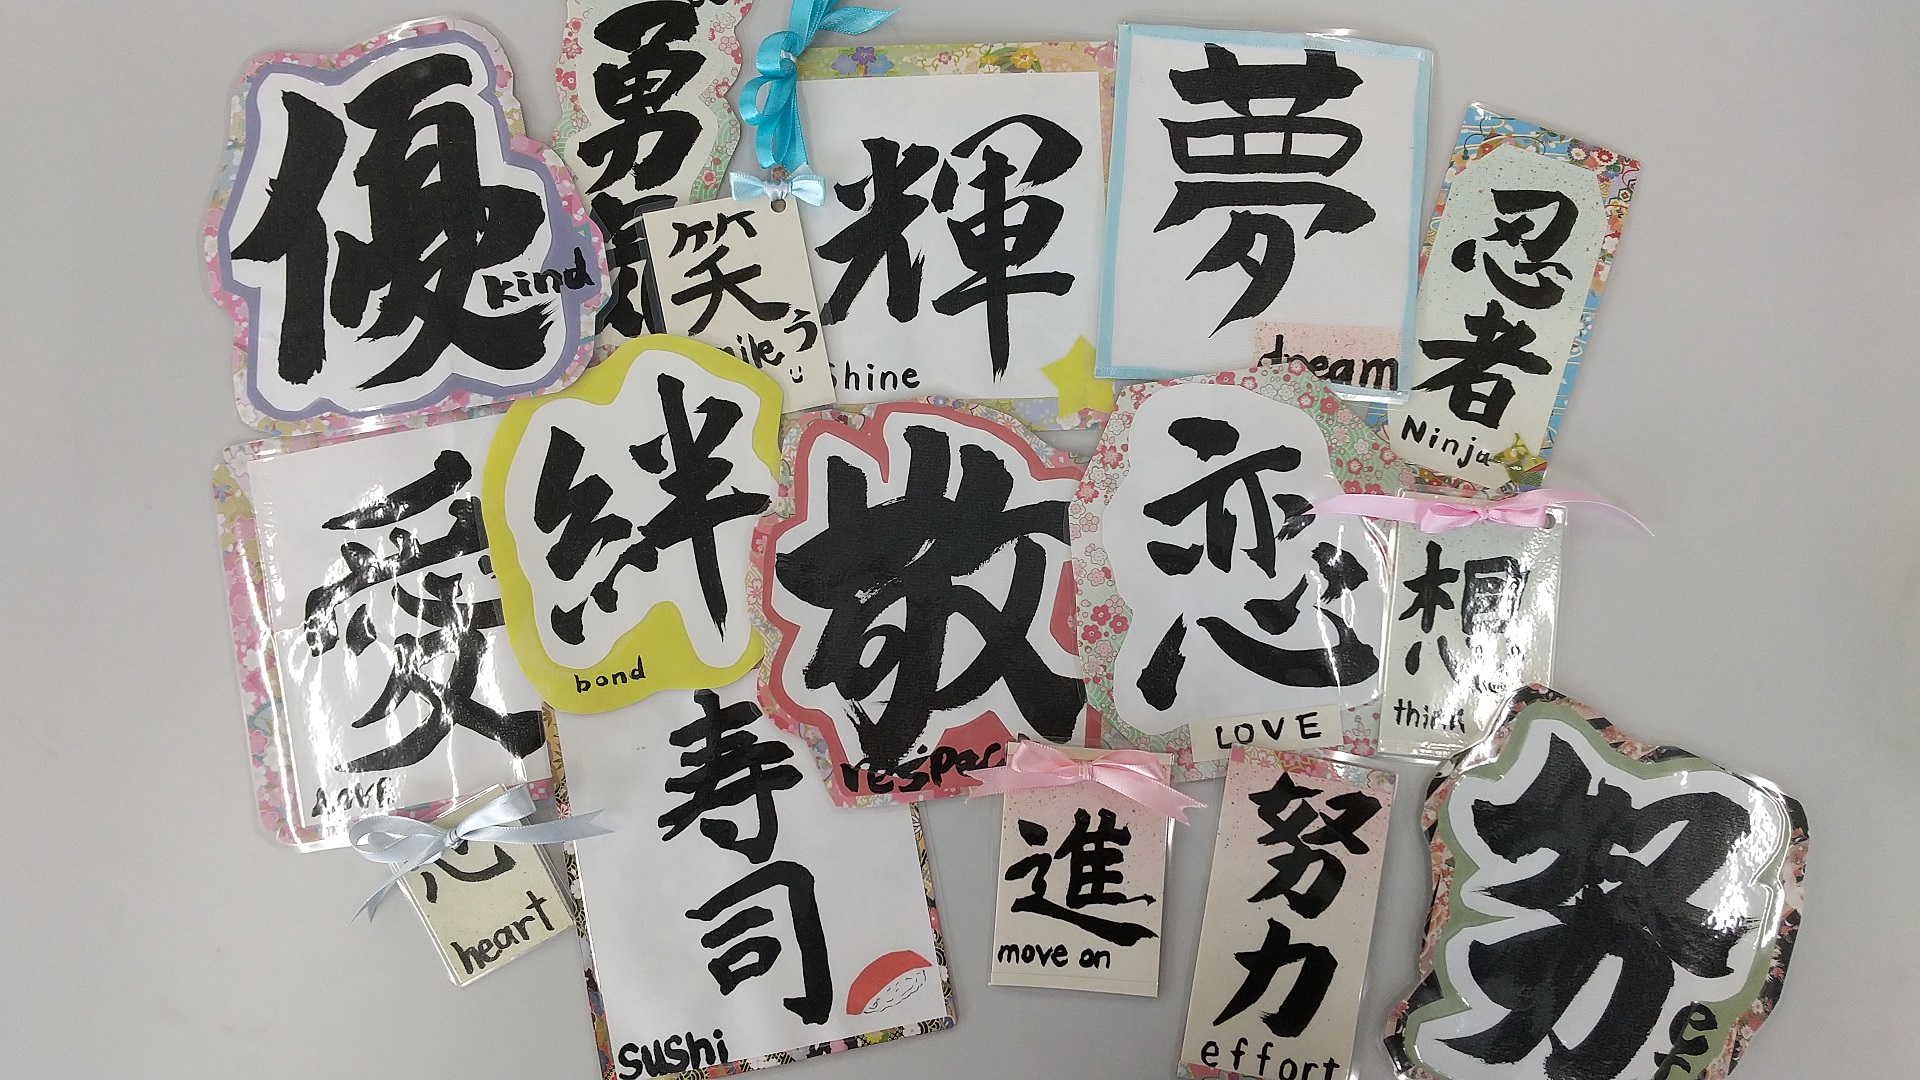 優
kind
勇
笑
う
輝
shine
夢
dream
忍者
Ninja
愛
Love
絆
bond
敬
respec
恋
LOVE
想
think
心
heart
寿司
sushi
進
move on
努力
effort
努